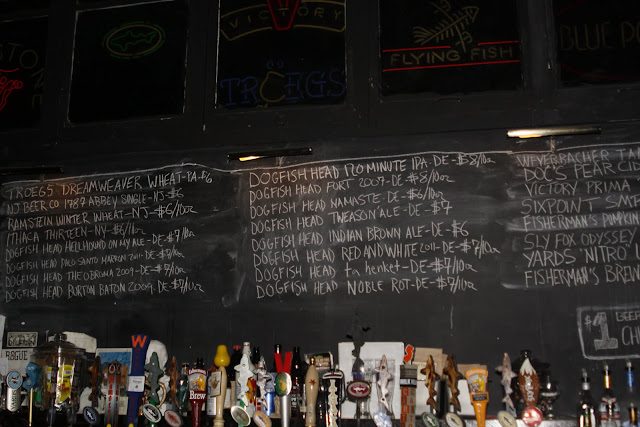 STONE
VICTORY
TROEGS
FLYING FISH
BLUE PO
TROEGS DREAMWEAVER WHEAT-PA-$6
NJ BEER CO 1787 ABBEY SINGLE-NJ-$6
RAMSTEIN WINTER WHEAT-NJ-$6/10oz
ITHACA THIRTEEN-NY-$6/10oz
DOGFISH HEAD HELLHOUND ON MY ALE-DE-$7/10oz
DOGFISH HEAD PALO SANTO MARRON 2011-DE-$7/10oz
DOGFISH HEAD THEOBROMA 2009-DE-$7/10oz
DOGFISH HEAD BURTON BATON 2009-DE-$7/10oz
DOGFISH HEAD 120 MINUTE IPA-DE-$8/10oz
DOGFISH HEAD FORT 2007-DE-$8/10oz
DOGFISH HEAD NAMASTE DE-$6/10oz
DOGFISH HEAD TWEASON'ALE-DE-$7
DOGFISH HEAD INDIAN BROWN ALE-DE-$6
DOGFISH HEAD RED AND WHITE 2011-DE-$7/10oz
DOGFISH HEAD ta henket-DE-$7/10oz
DOGFISH HEAD NOBLE ROT-DE-$7/10oz
WEYERBACHER
DOC'S PEAR CI
VICTORY PRIMA
SIXPOINT
FISHERMAN'S PUMPKIN
SLY FOX ODYSSEY
YARDS 'NITRO'
FISHERMAN'S BREW
$1 BEER
CH
ROGUE
W
Brew